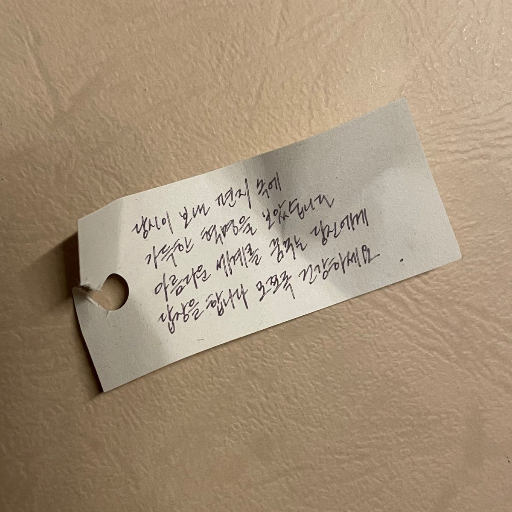 당신이 보낸 편지 속에
가득한 혁명을 보았습니다
아름다운 세계를 꿈꾸는 당신에게
답장을 합니다 모쪼록 건강하세요.